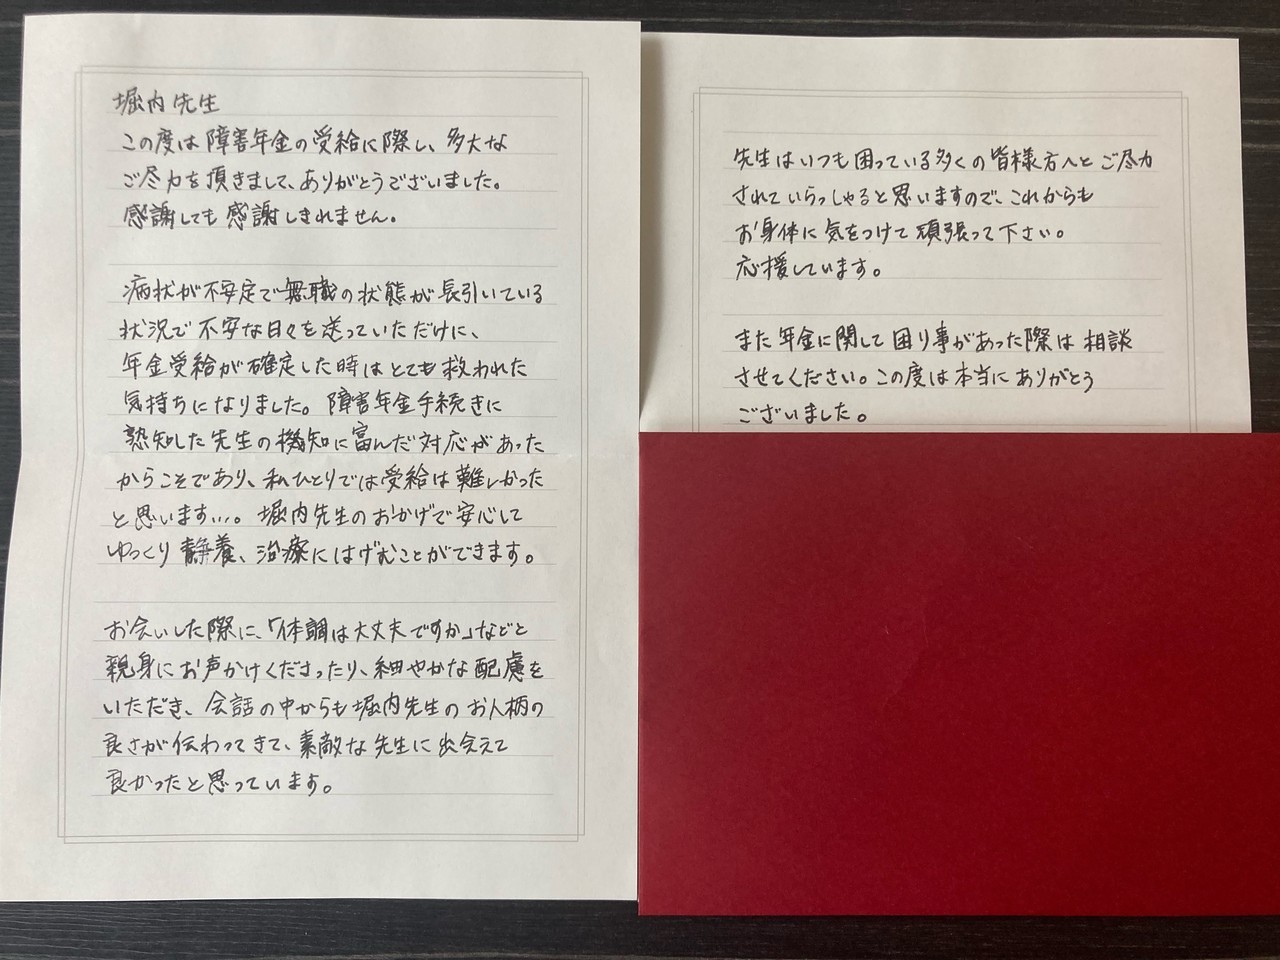 堀内先生
この度は障害年金の受給に際し、多大な
ご尽力を頂きまして、ありがとうございました。
感謝しても感謝しきれません。
病状が不安定で無職の状態が長引いている
状況で不安な日々を送っていただけに、
年金受給が確定した時はとても救われた
気持ちになりました。障害年金手続きに
熟知した先生の機知に富んだ対応があった
からこそであり、私ひとりでは受給は難しかった
と思います...。堀内先生のおかげで安心して
ゆっくり静養、治療にはげむことができます。
お会いした際に、「体調は大丈夫ですか」などと
親身にお声かけくださったり、細やかな配慮を
いただき、会話の中からも堀内先生のお人柄の
良さが伝わってきて、素敵な先生に出会えて
良かったと思っています。
先生はいつも困っている多くの皆様方へとご尽力
されていらっしゃると思いますので、これからも
お身体に気をつけて頑張って下さい。
応援しています。
また年金に関して困り事があった際は相談
させてください。この度は本当にありがとう
ございました。